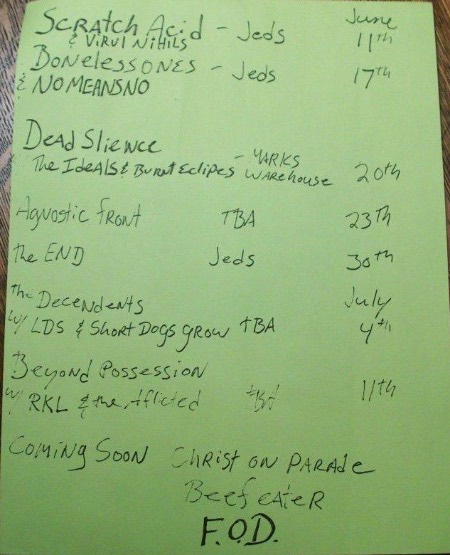 June
Scratch Acid - Jeds 11th
& Virul Nihils
Bonelessones - Jeds 17th
& NOMEANSNO
Dead Slience
The Ideals & Burnt Eclipes - YARKS WAREHOUSE 20th
Agnostic Front TBA 23th
The END Jeds 30th
The Decendents July
w/ LDS & Short Dogs grow TBA 4th
Beyond Possession
w/ RKL & the Aflicted tBA 11th
Coming Soon Christ on Parade
Beefeater
F.O.D.